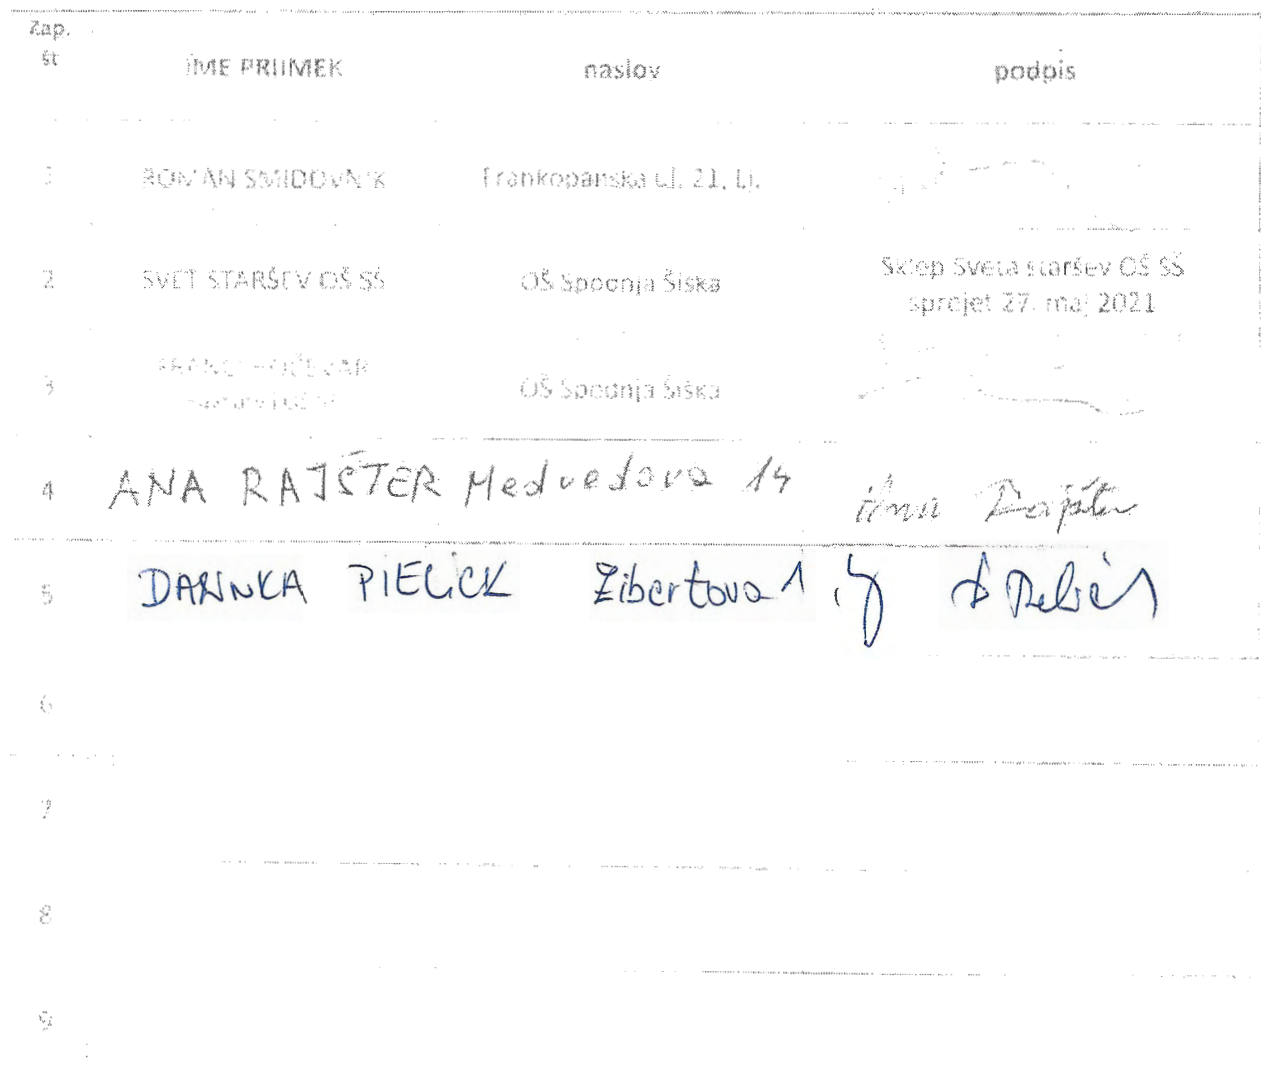 Zap. št IME PRIIMEK naslov podpis
1 ROMAN SMIDOVNIK Frankopanska ul. 21, Lj.
2 SVET STARŠEV OŠ SŠ OŠ Spodnja Šiška Sklep Sveta staršev OŠ SŠ
sprejet 27. maj 2021
3 FRANCI HOČEVAR OŠ Spodnja Šiška
4 ANA RAJŠTER Medvedova 14 Ana Rajšter
5 DARINKA Žibertova 1
6
7
8
9